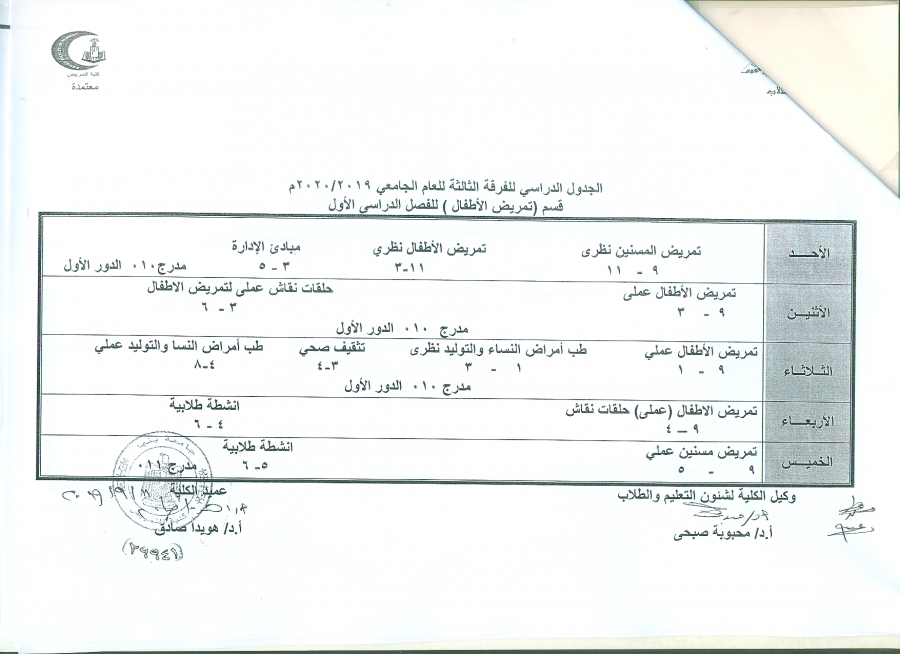 كلية التمريض
معتمدة
الجدول الدراسي للفرقة الثالثة للعام الجامعي ٢٠٢٠/٢٠١٩م
قسم (تمريض الأطفال ) للفصل الدراسي الأول
الأحــد تمريض المسنين نظرى تمريض الأطفال نظري مبادئ الإدارة
٩ - ١١ ١١-٣ ٣ - ٥ مدرج ٠١٠ الدور الأول
الأثنيـن تمريض الأطفال عملى حلقات نقاش عملى لتمريض الاطفال
٩ - ٣ ٣ - ٦
مدرج ٠١٠ الدور الأول
الثلاثـاء تمريض الأطفال عملي طب أمراض النساء والتوليد نظرى تثقيف صحي طب أمراض النسا والتوليد عملي
٩ - ١ ١ - ٣ ٣-٤ ٤-٨
مدرج ٠١٠ الدور الأول
الأربعـاء تمريض الاطفال (عملى) حلقات نقاش انشطة طلابية
٩ – ٤ ٤ - ٦
الخميـس تمريض مسنين عملي انشطة طلابية
٩ - ٥ ٥- ٦ مدرج ٠١١
وكيل الكلية لشئون التعليم والطلاب عميد الكلية
أ.د/ محبوبة صبحى أ.د/ هويدا صادق
(٢٩٩٤١)